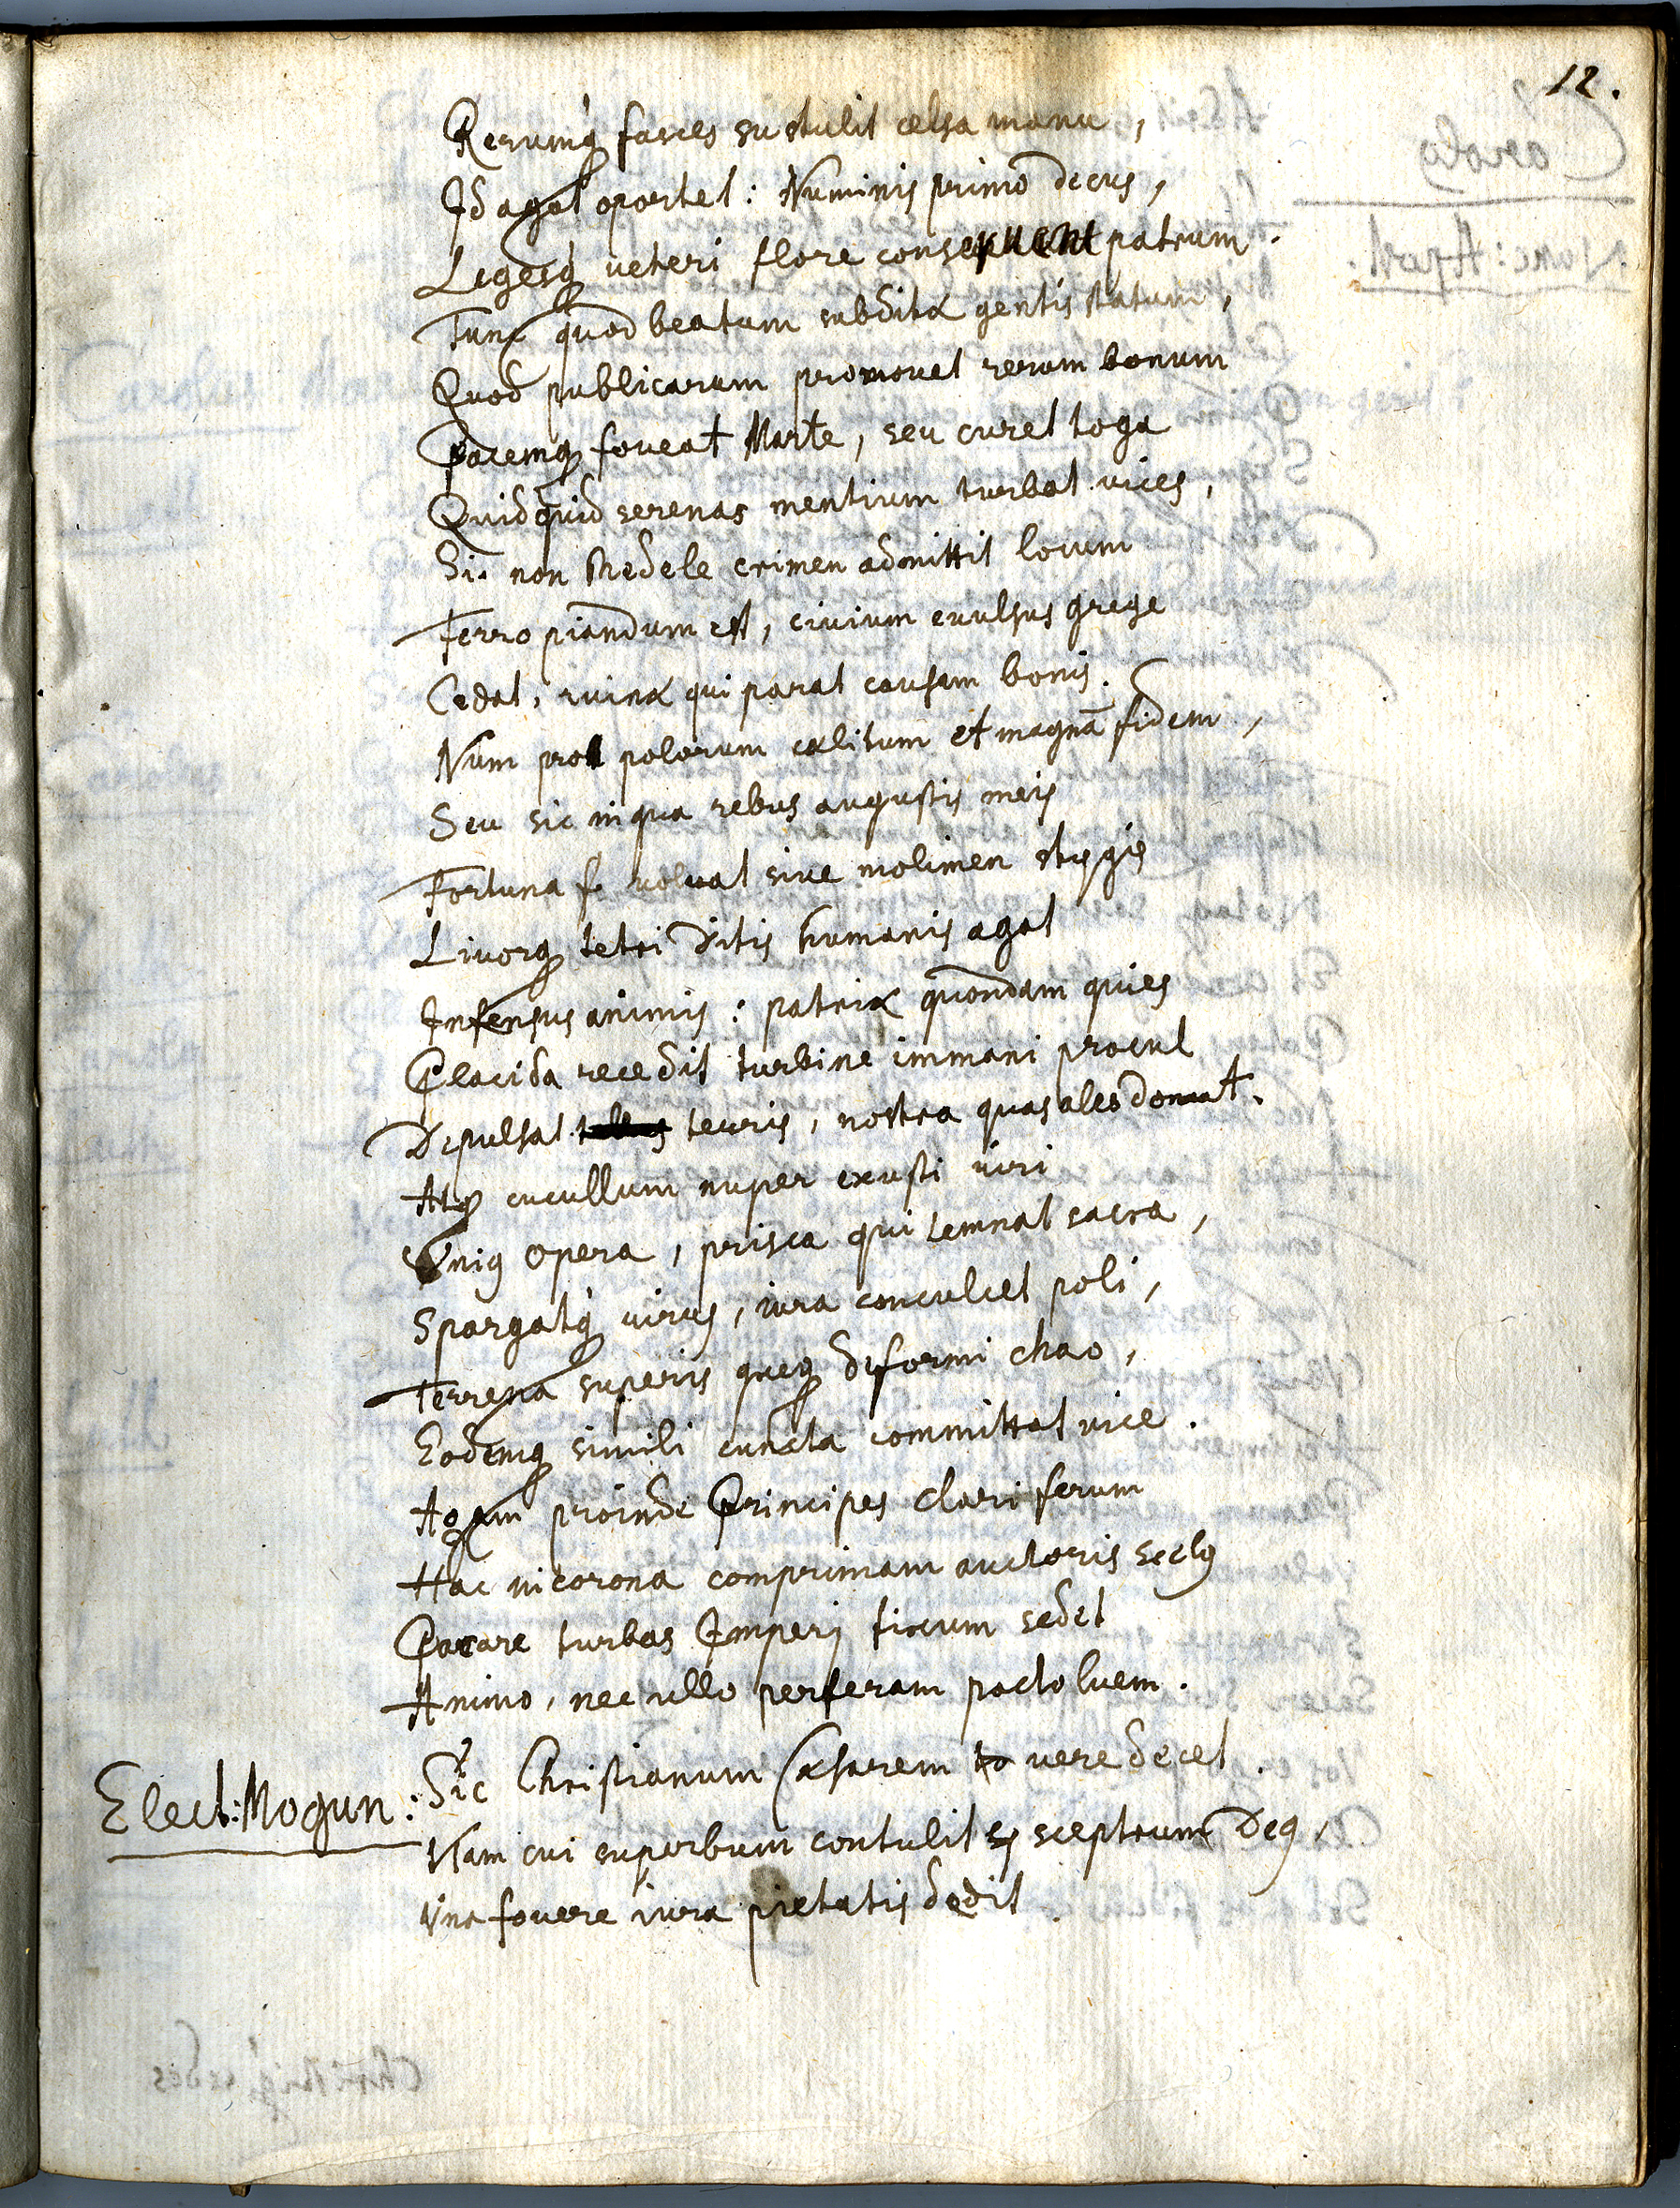 12.
Rerumq fasces sustulit celsa manu,
Id agat oportet: Numinis primo decus,
Legesq veteri flore conservent patrum.
Tunc quod beatum subditæ gentis statum,
Quod publicarum promovet rerum bonum
Pacemq foveat Marte, seu curet toga
Quidquid serenas mentium turbat vices,
Si non medele crimen admittit locum
Ferro piandum est, civium evulsus grege
Cedat, ruinæ qui parat causam bonis.
Num polorum cælitum et magnã fidem,
Seu sic iniqua rebus augustis meis
Fortuna volvat sive molimen stygis
Livorq tetri Ditis humanis agat
Infensus animis: patriæ quondam quies
Placida recedit turbine immani procul
Depulsat terris, nostra quas ales domat.
Atq cucullum nuper exusti viri
Unig opera, prisca qui temnat sacra,
Spargatq virus, iura conculcet poli,
Terrena superis queq diformi chao,
Eodemq simili cuncta committat vice.
proinde Principes clari ferum
Hac in corona comprimam auctoris scelg
Pacare turbas Imperij fixum sedet
Animo, nec ullo perferam pacto luem.
Elect: Mogun: Sic Christianum Cæsarem vere decet.
Nam cui superbum contulit sceptrum Deg,
Una fovere iura pietatis dedit.